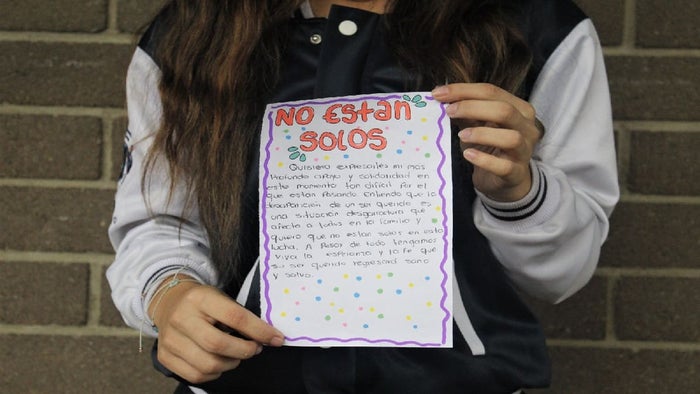 No Están
Solos
Quisiera expresarles mi mas
profundo apoyo y solidaridad en
este momento tan dificil por el
que están pasando. Entiendo que la
desaparición de un ser querido es
una situación desgarradora que
afecta a toda la familia y
quiero que no estan solos en esta
lucha. A pesar de todo tengamos
viva la esperanza y la fe que
su ser querido regresará sano
y salvo.